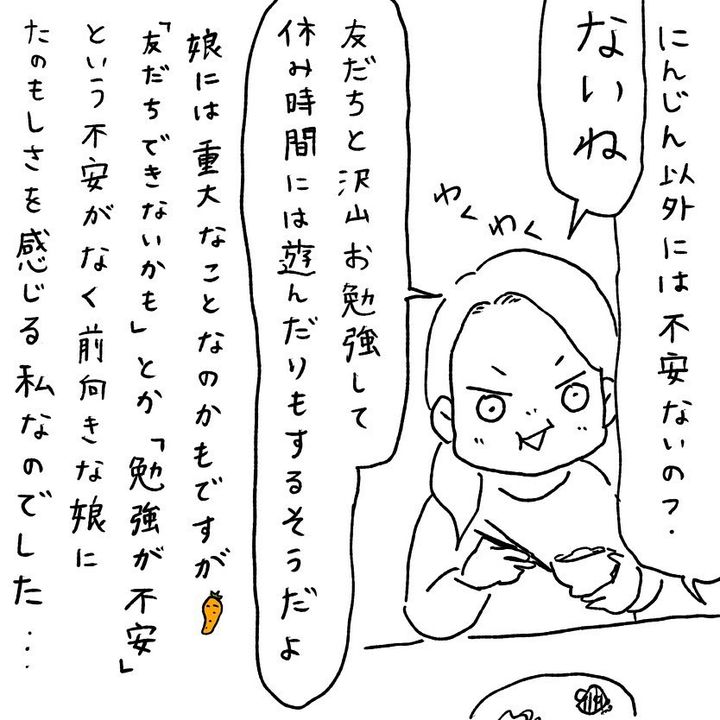 にんじん以外には不安ないの?.
ないね
わくわく
友だちと沢山お勉強して
休み時間には遊んだりもするそうだよ
娘には重大なことなのかもですが
「友だちできないかも」とか「勉強が不安」
という不安がなく前向きな娘に
たのもしさを感じる私なのでした...